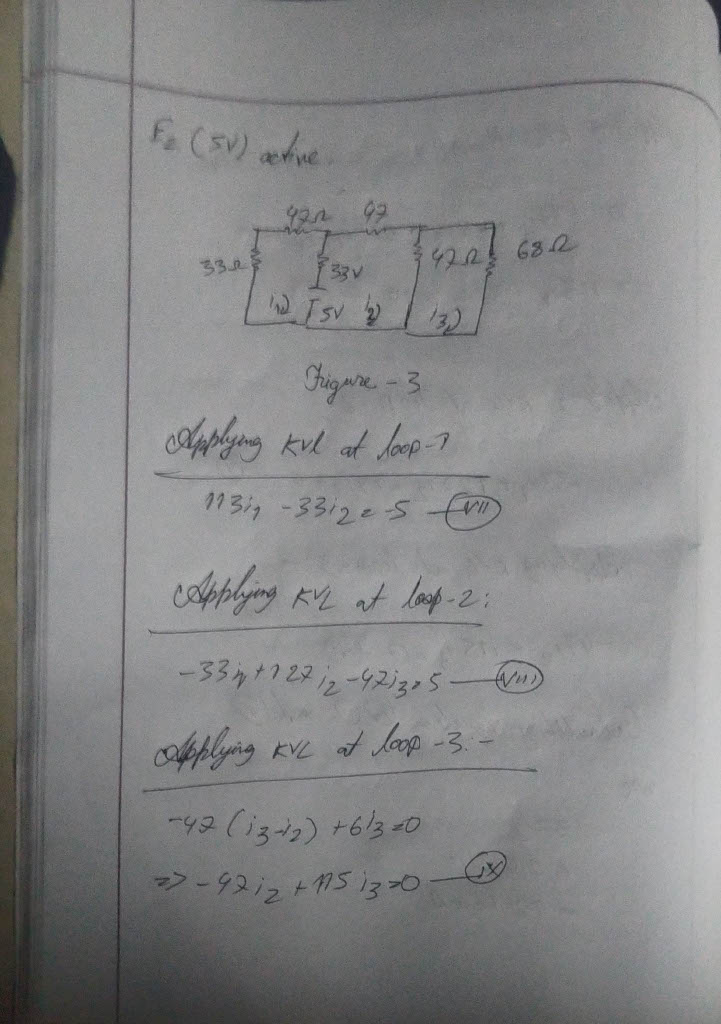 E₂ (5V) active.
47Ω 47
33Ω 33V 47Ω 68Ω
i₁ 5V i₂ i₃
Figure - 3
Applying KVL at loop-1
113i₁ - 33i₂ = -5 — VII
Applying KVL at loop-2:
-33i₁ + 127i₂ - 47i₃ = 5 — VIII
Applying KVL at loop-3:-
-47 (i₃-i₂) + 6i₃=0
=> -47i₂ + 115i₃=0 — IX